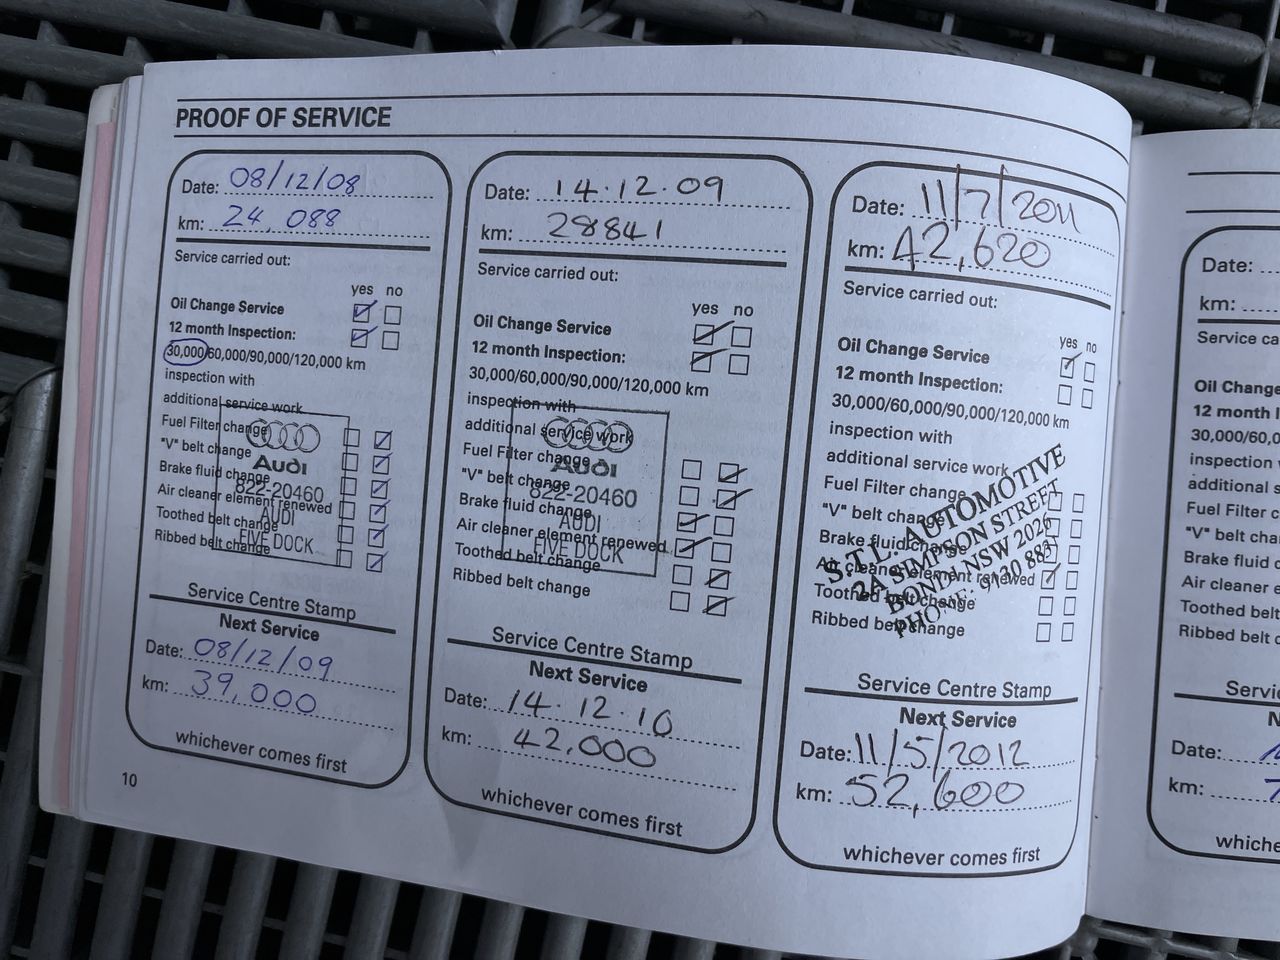 PROOF OF SERVICE
Date: 08/12/08
km: 24,088
Service carried out:
yes no
Oil Change Service
12 month Inspection:
30,000/60,000/90,000/120,000 km
inspection with
additional service work
Fuel Filter change
"V" belt change
Brake fluid change
Air cleaner element renewed
Toothed belt change
Ribbed belt change
Audi
822-20460
AUDI
FIVE DOCK
Service Centre Stamp
Next Service
Date: 08/12/09
km: 39,000
whichever comes first
10
Date: 14.12.09
km: 28841
Service carried out:
yes no
Oil Change Service
12 month Inspection:
30,000/60,000/90,000/120,000 km
inspection with
additional service work
Fuel Filter change
"V" belt change
Brake fluid change
Air cleaner element renewed
Toothed belt change
Ribbed belt change
Audi
822-20460
AUDI
FIVE DOCK
Service Centre Stamp
Next Service
Date: 14.12.10
km: 42,000
whichever comes first
Date: 11/7/2011
km: 42,620
Service carried out:
yes no
Oil Change Service
12 month Inspection:
30,000/60,000/90,000/120,000 km
inspection with
additional service work
Fuel Filter change
"V" belt change
Brake fluid change
Air cleaner element renewed
Toothed belt change
Ribbed belt change
S.T.L. AUTOMOTIVE
2A SIMPSON STREET
BONDI NSW 2026
PHONE: 9130
Service Centre Stamp
Next Service
Date: 11/5/2012
km: 52,600
whichever comes first
Date:
km:
Service ca
Oil Change
12 month I
30,000/60,0
inspection
additional s
Fuel Filter c
"V" belt cha
Brake fluid
Air cleaner e
Toothed be
Ribbed belt c
Servi
N
Date:
km:
whiche